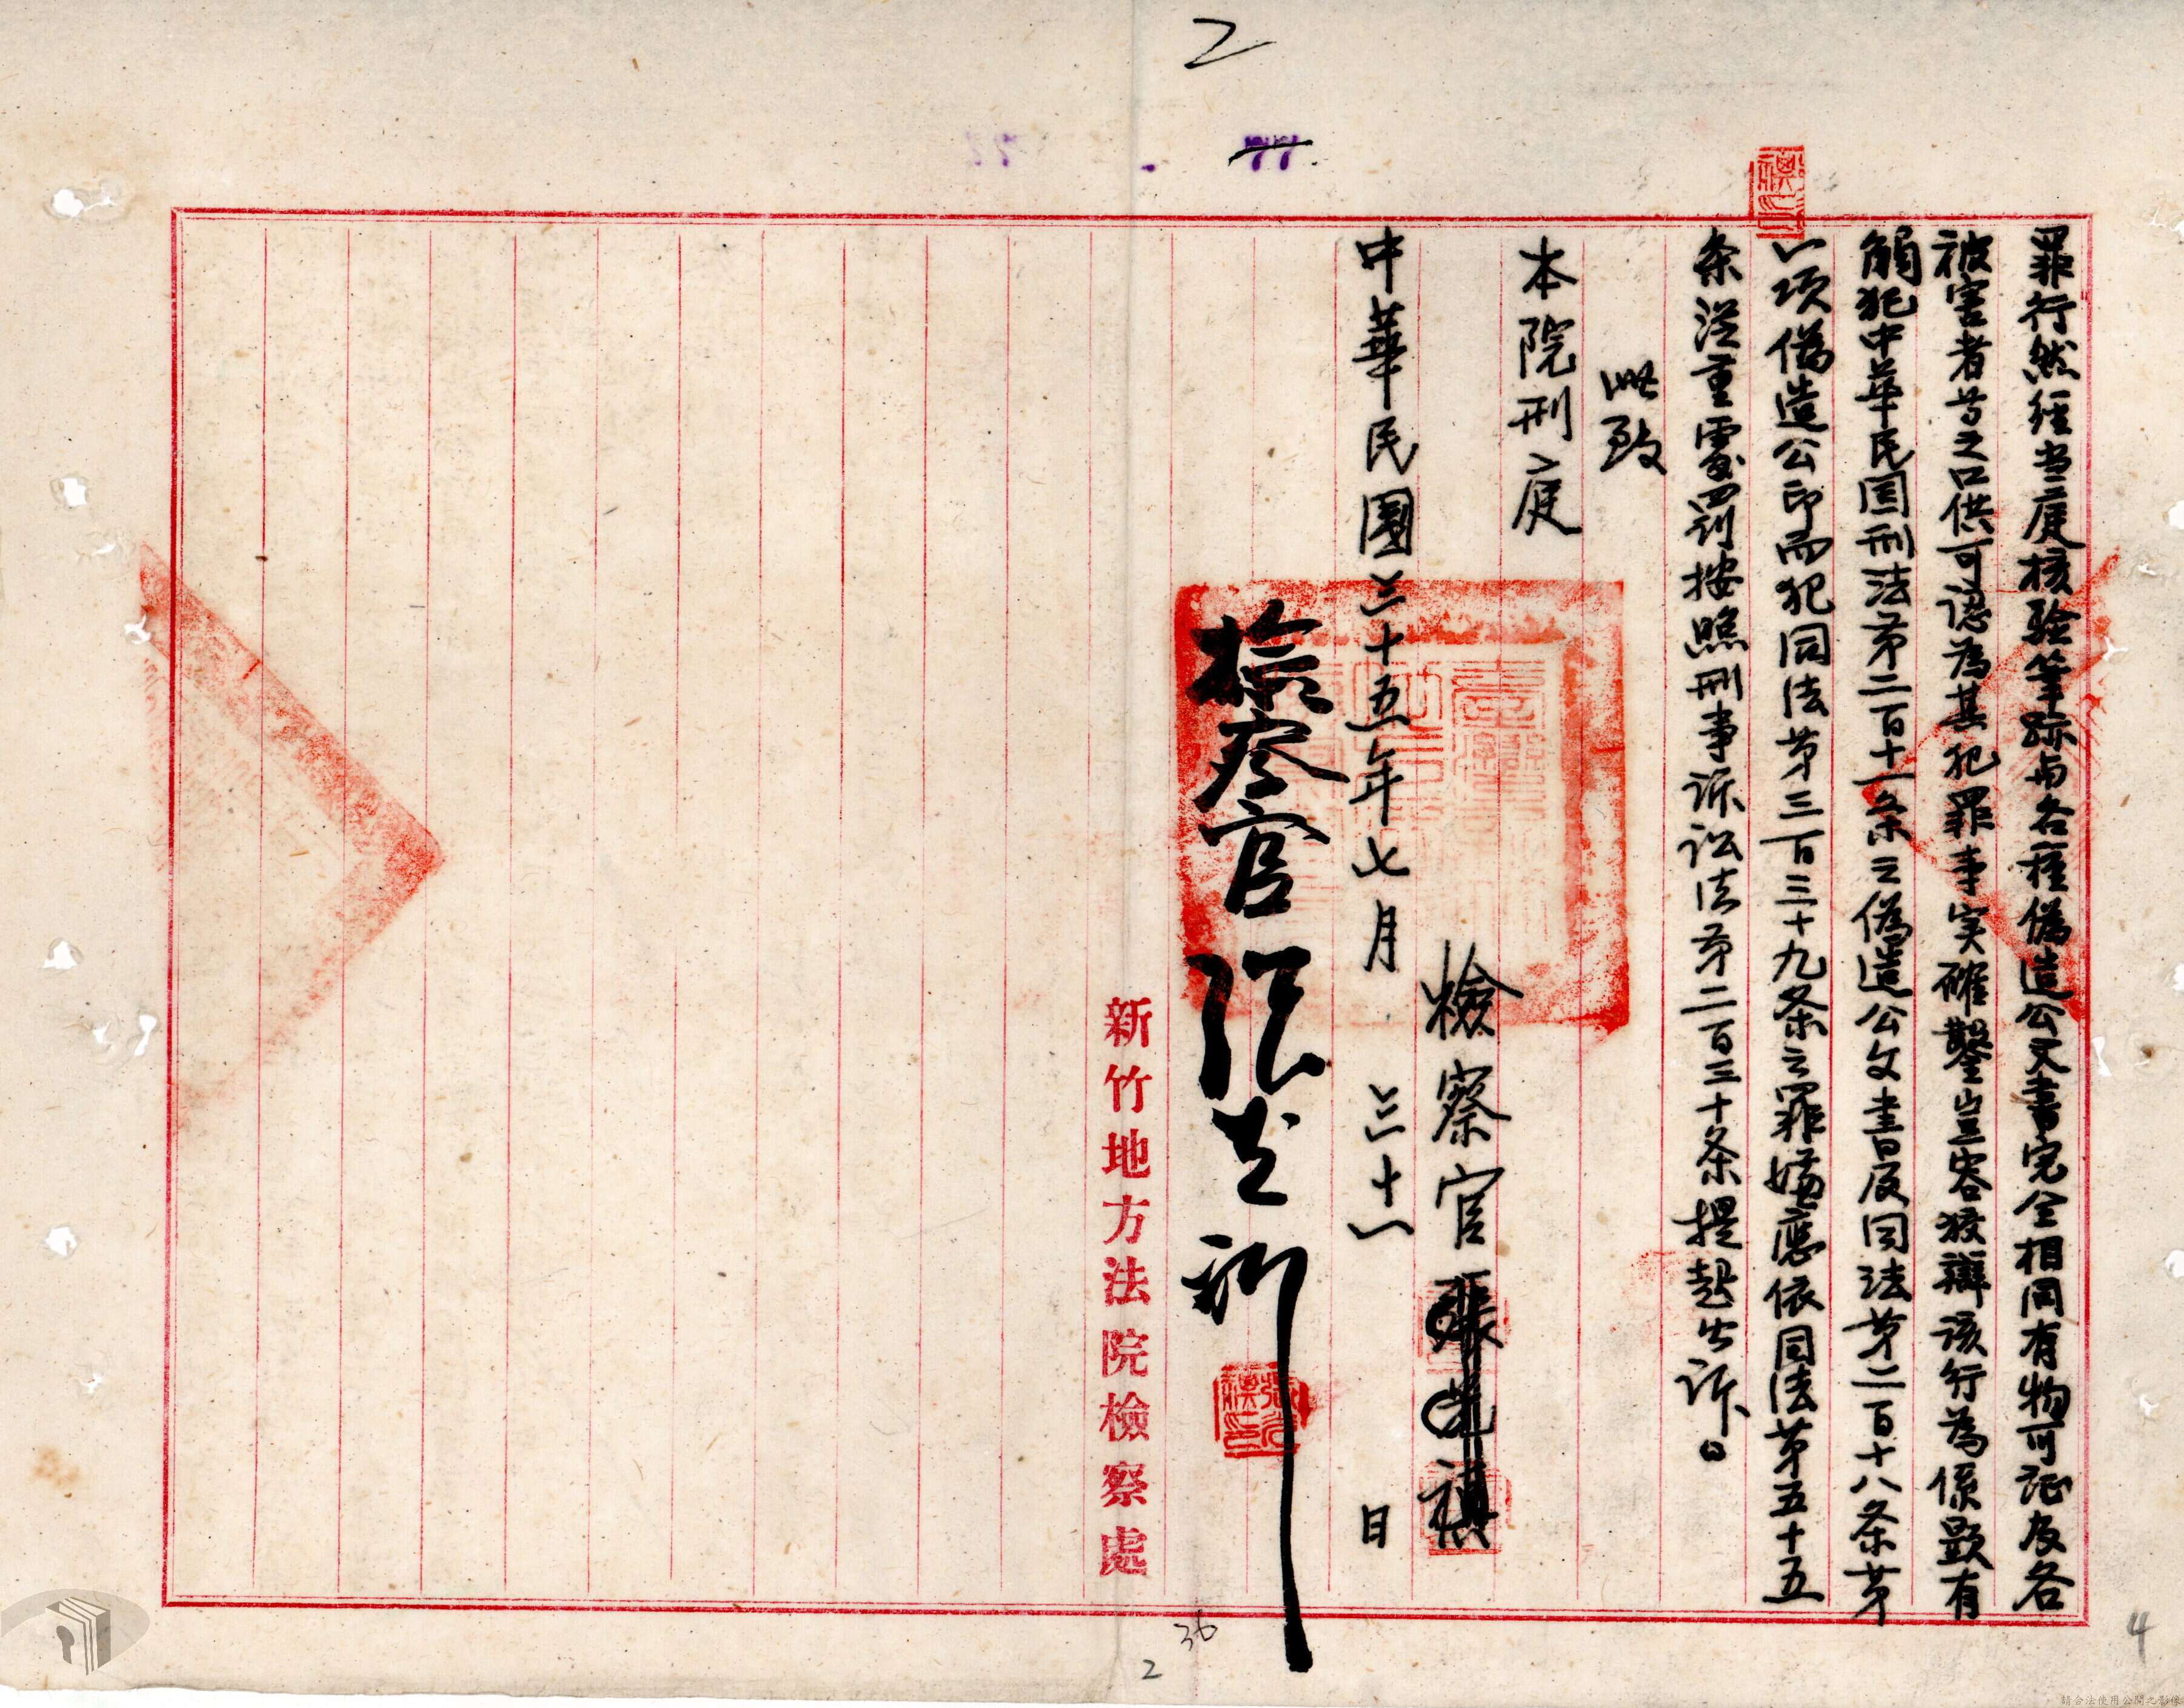 2
77
罪行然经当庭核验筆跡与各種偽造公文書完全相同有物可証及各
被害者等之口供可認為其犯罪事实確鑿豈容狡辯該行為係顕有
觸犯中華民国刑法第二百十一条之偽造公文書及同法第二百十八条第
一項偽造公印而犯同法第三百三十九条之罪嫌應依同法第五十五
条從重處罰按照刑事訴訟法第二百三十条提起公訴
此致
本院刑庭
檢察官
中華民國三十五年七月三十一日
檢察官
新竹地方法院檢察處
36
2
4
請合法使用公開之影像